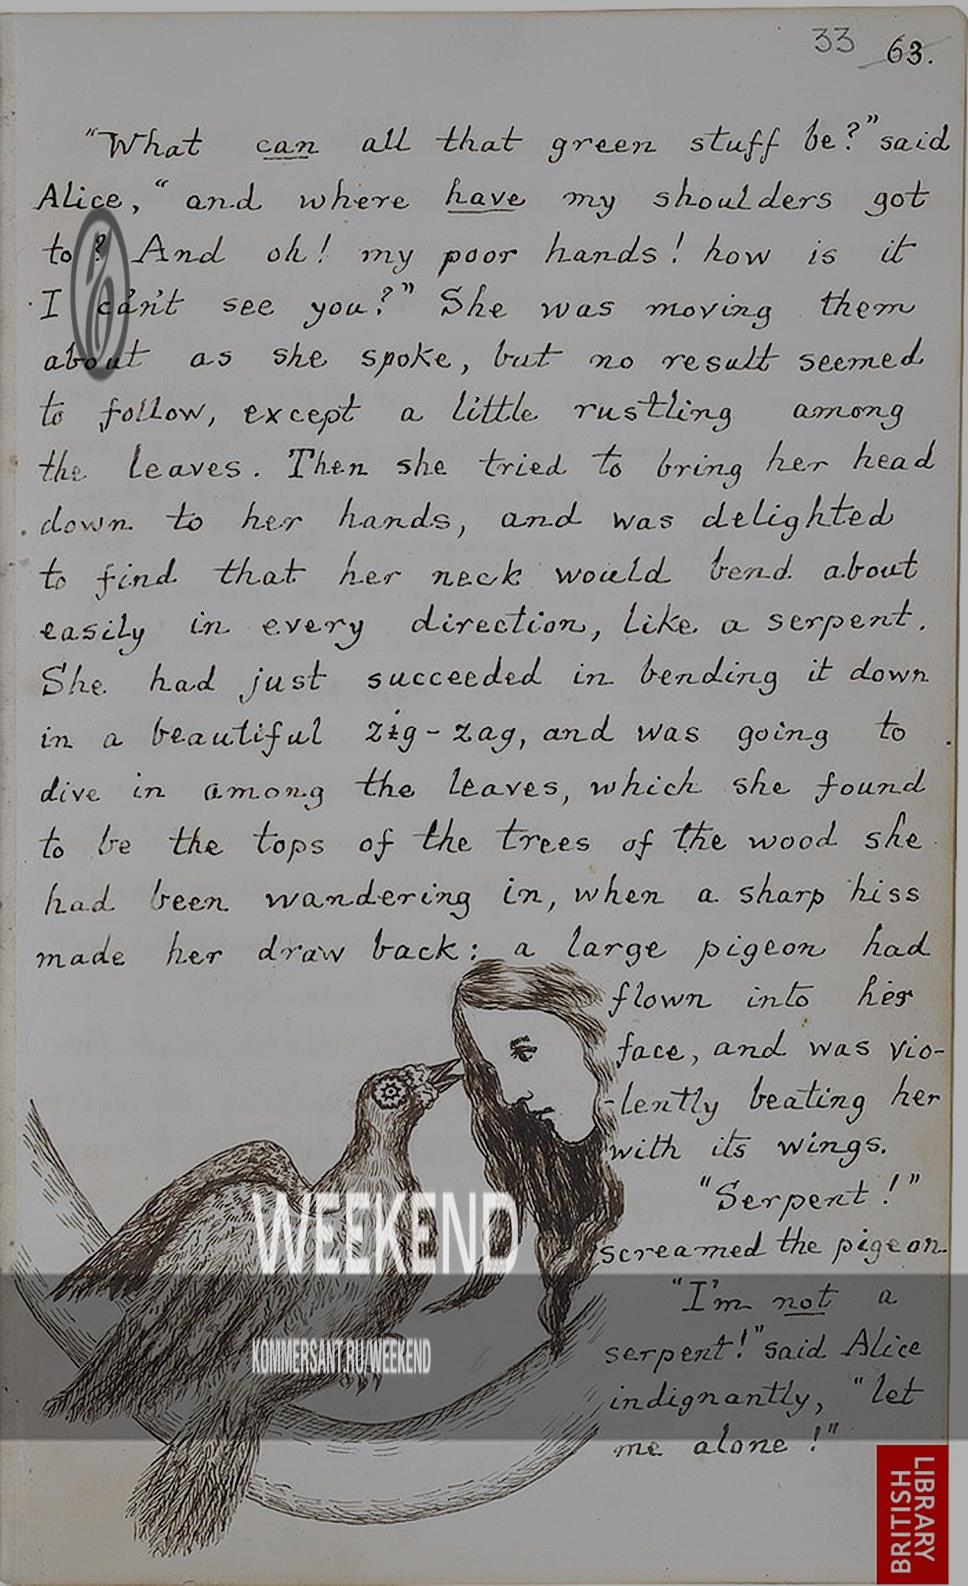 33 63.
"What can all that green stuff be?" said
Alice, "and where have my shoulders got
to? And oh! my poor hands! how is it
I can't see you?" She was moving them
about as she spoke, but no result seemed
to follow, except a little rustling among
the leaves. Then she tried to bring her head
down to her hands, and was delighted
to find that her neck would bend about
easily in every direction, like a serpent.
She had just succeeded in bending it down
in a beautiful zig-zag, and was going to
dive in among the leaves, which she found
to be the tops of the trees of the wood she
had been wandering in, when a sharp hiss
made her draw back: a large pigeon had
flown into her
face, and was vio-
-lently beating her
with its wings.
"Serpent!"
screamed the pigeon.
"I'm not a
serpent!" said Alice
indignantly, "let
me alone!"
WEEKEND
KOMMERSANT.RU/WEEKEND
BRITISH
LIBRARY